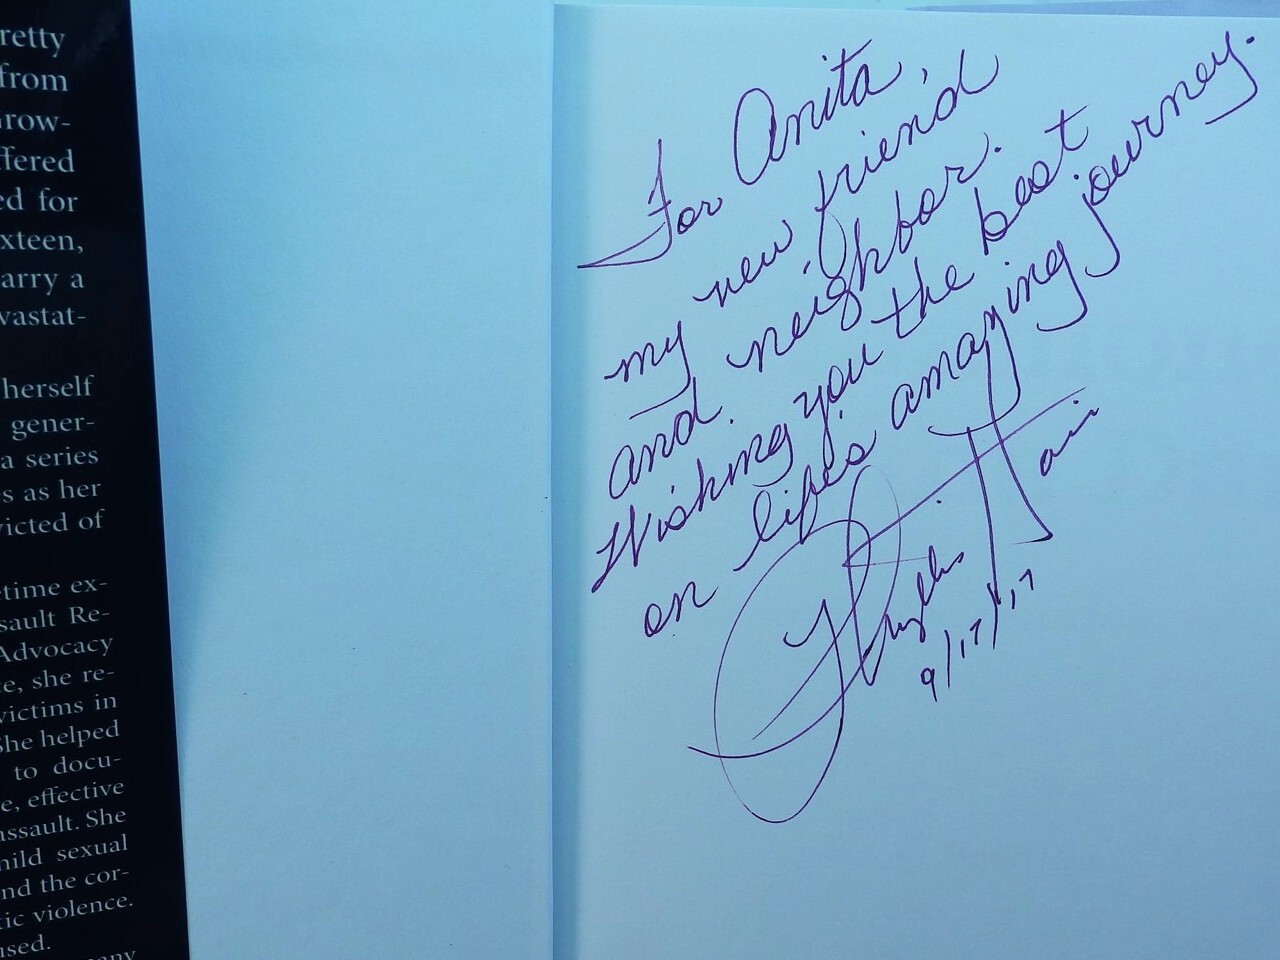 retty
from
row-
ffered
ed for
xteen,
arry a
vastat-
herself
gener-
a series
s as her
victed of
etime ex-
sault Re-
Advocacy
e, she re-
victims in
She helped
to docu-
e, effective
assault. She
hild sexual
nd the cor-
tic violence.
used.
any
For Anita,
my new friend
and neighbor.
Wishing you the best
on lifes amazing journey.
Phyllis
9/17/17